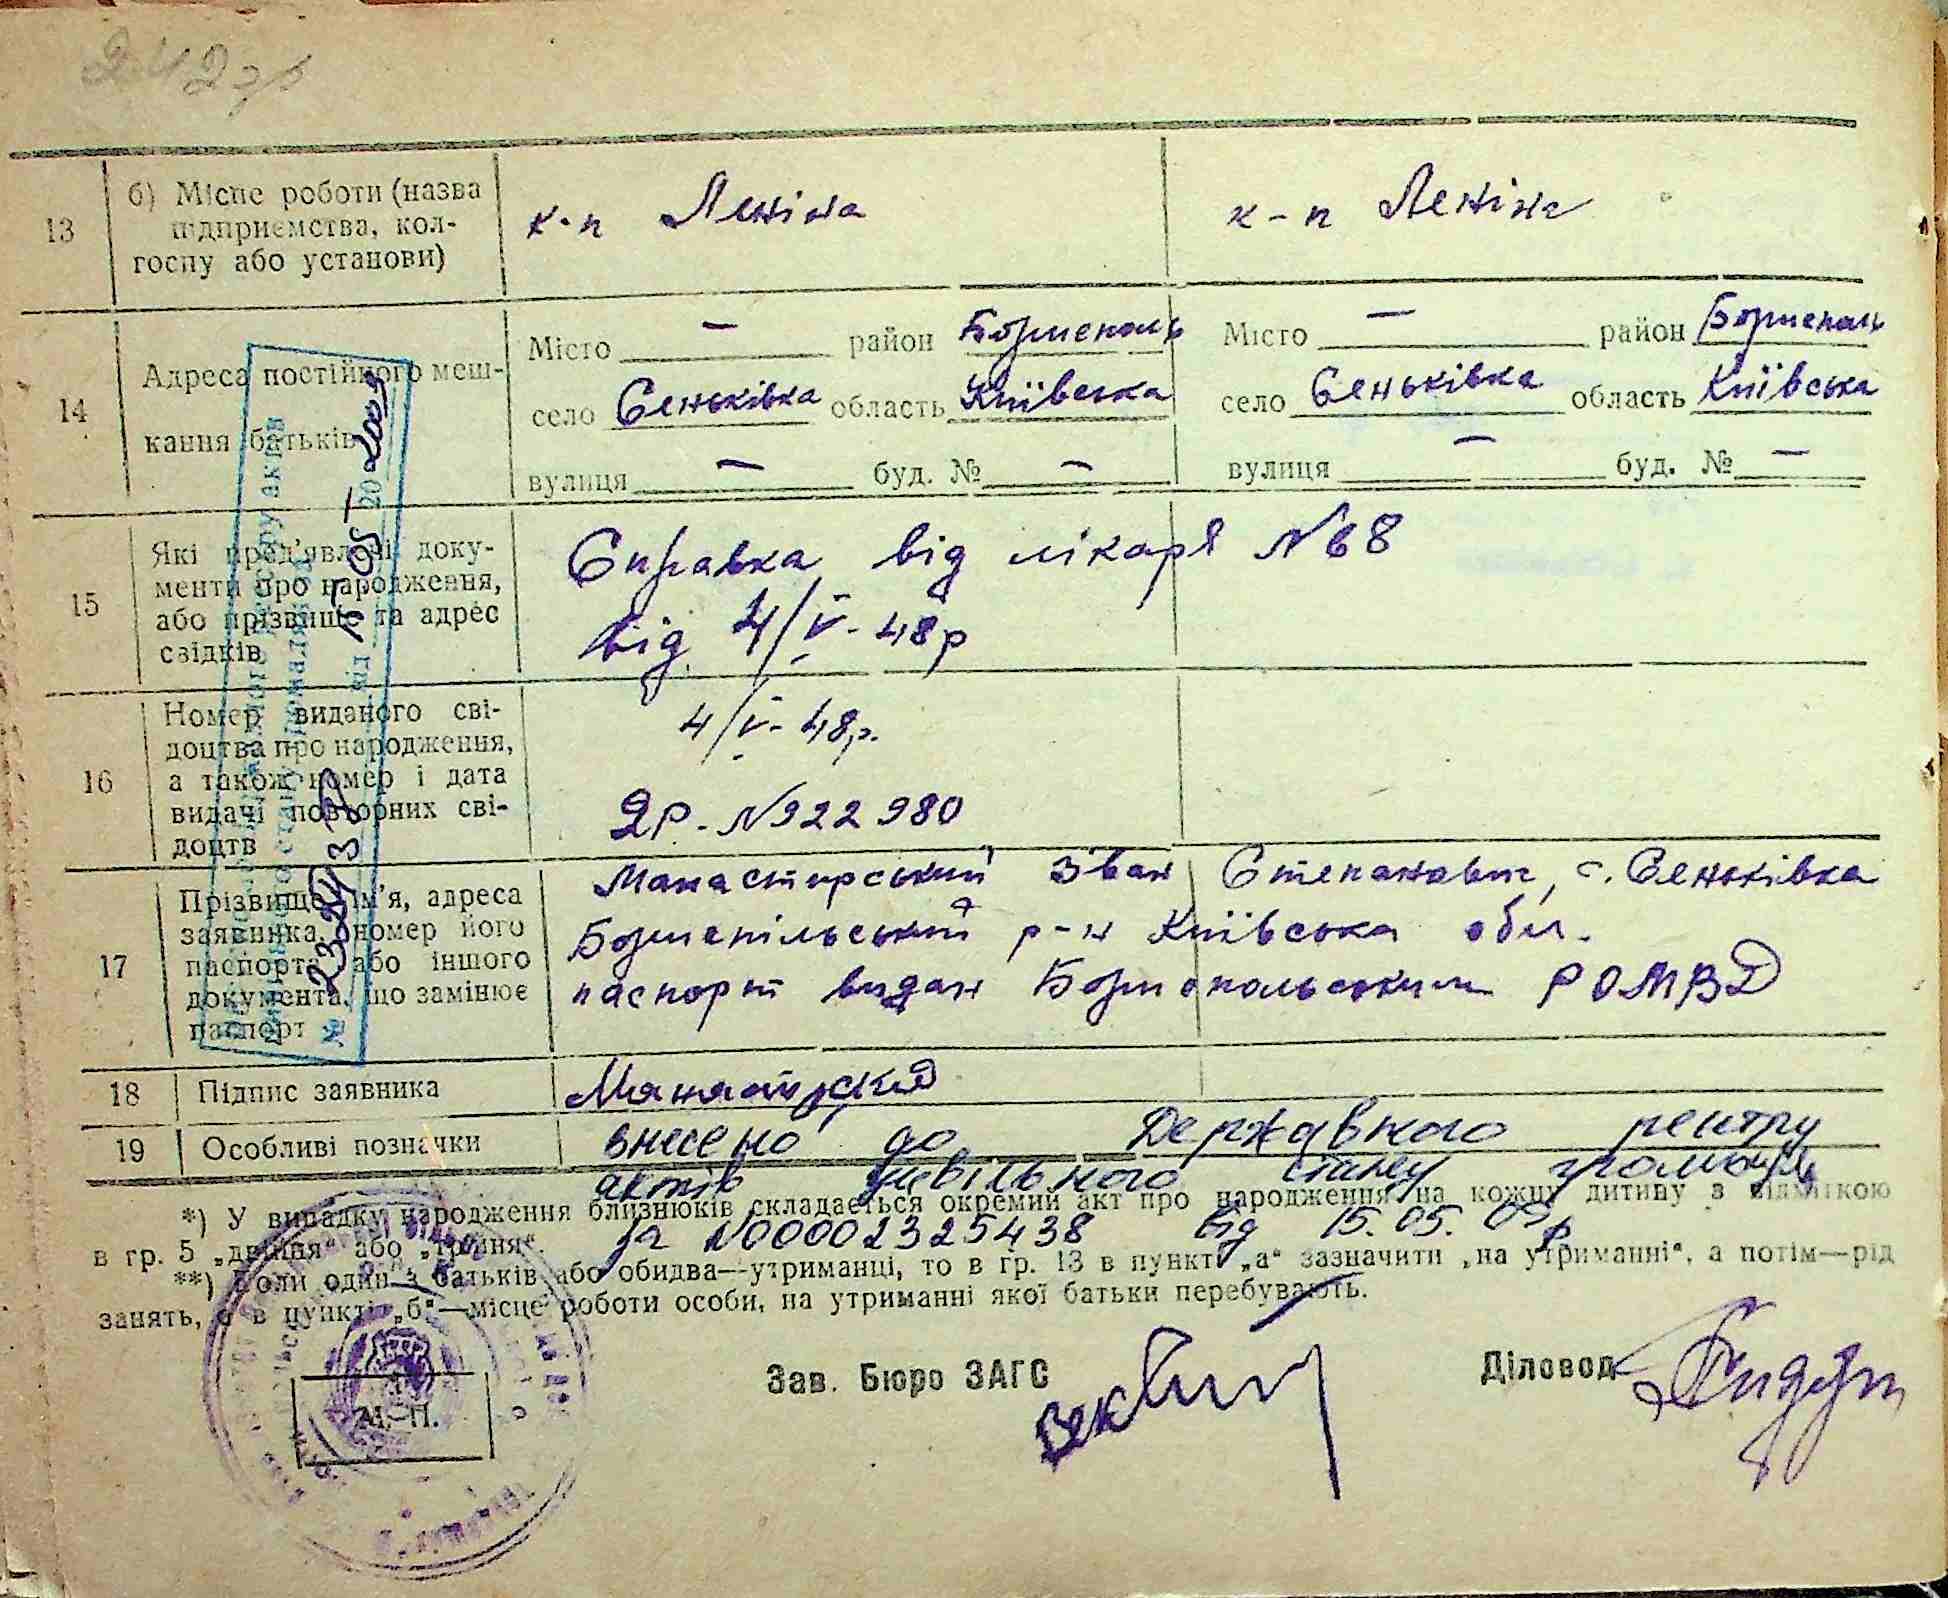 242 зр
13 б) Місце роботи (назва підприємства, колгоспу або установи) к-п Леніна к-п Леніна
14 Адреса постійного мешкання батьків
Місто — район Бориспіль Місто — район Бориспіль
село Сеньківка область Київська село Сеньківка область Київська
вулиця — буд. № — вулиця — буд. № —
15 Які пред'явлені документи про народження, або прізвище та адрес свідків
Справка від лікаря №68
від 4/V-48р
16 Номер виданого свідоцтва про народження, а також номер і дата видачі повторних свідоцтв
4/V-48р.
ЯР-№922980
17 Прізвище, ім'я, адреса заявника, номер його паспорта або іншого документа, що замінює паспорт
Манастирський Іван Степанович, с. Сеньківка
Бориспільський р-н Київська обл.
паспорт видан Бориспольським РОМВД
18 Підпис заявника Манастирский
19 Особливі позначки внесено до Державного реєстру
актів цивільного стану громадян
за №00002325438 від 15.05.09р
*) У випадку народження близнюків складається окремий акт про народження на кожну дитину з відміткою
в гр. 5 „двійня" або „трійня".
**) Коли один з батьків або обидва—утриманці, то в гр. 13 в пункті „а" зазначити „на утриманні", а потім—рід
занять, а в пункті „б"—місце роботи особи, на утриманні якої батьки перебувають.
Зав. Бюро ЗАГС Діловод
М. П.